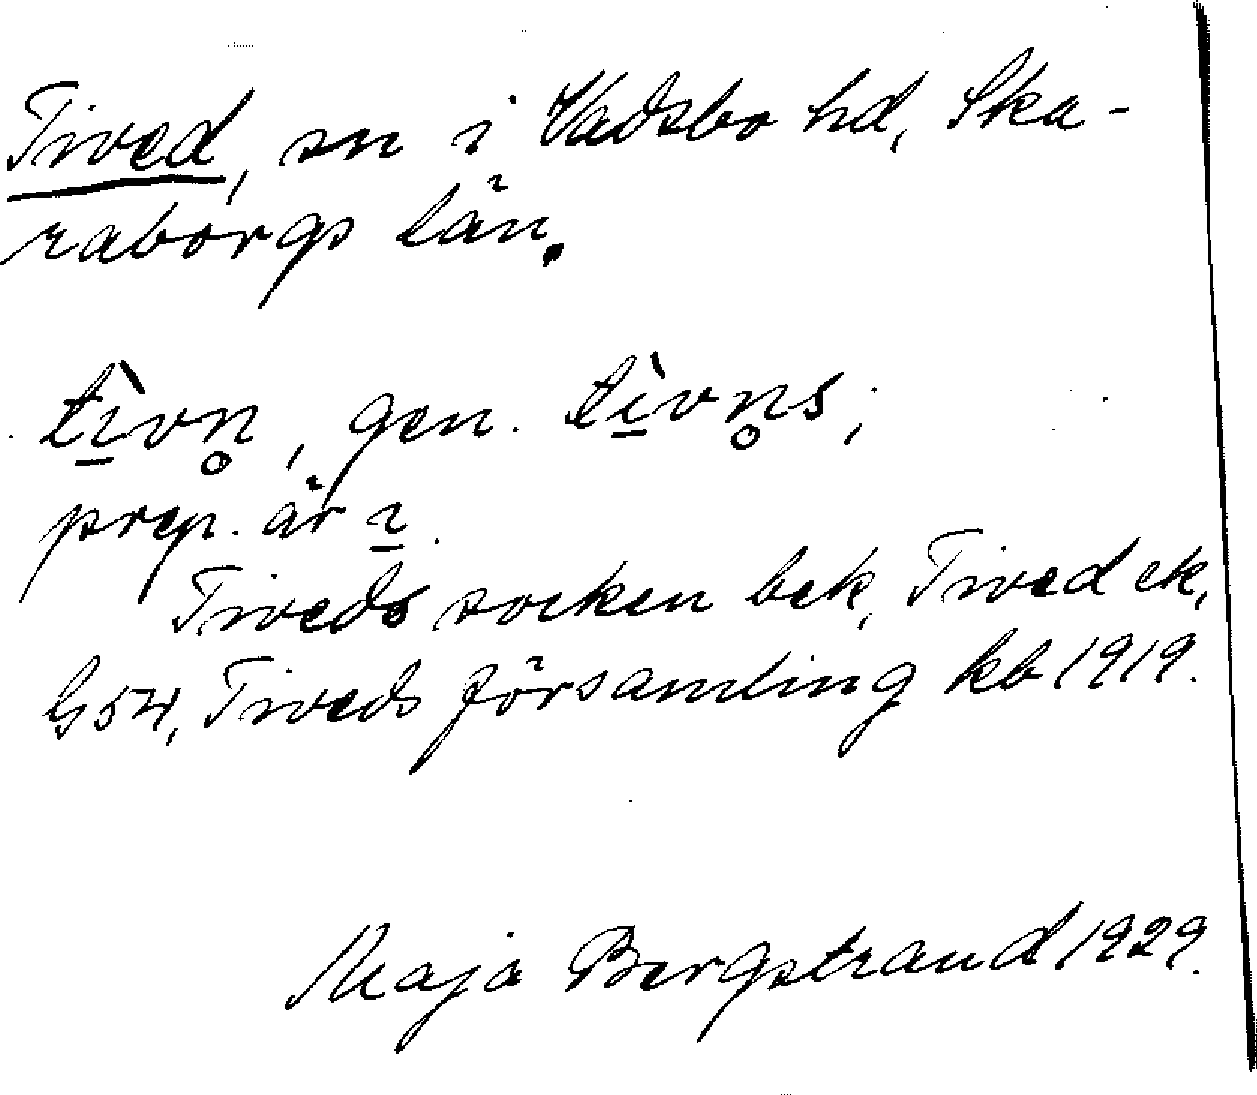 Tived, sn i Vadsbo hd, Ska-
raborgs län.
tìvn̥, gen. tìvn̥s;
prep. är i.
Tiveds socken bek, Tived ek,
G54, Tiveds församling kb 1919.
Maja Bergstrand 1929.